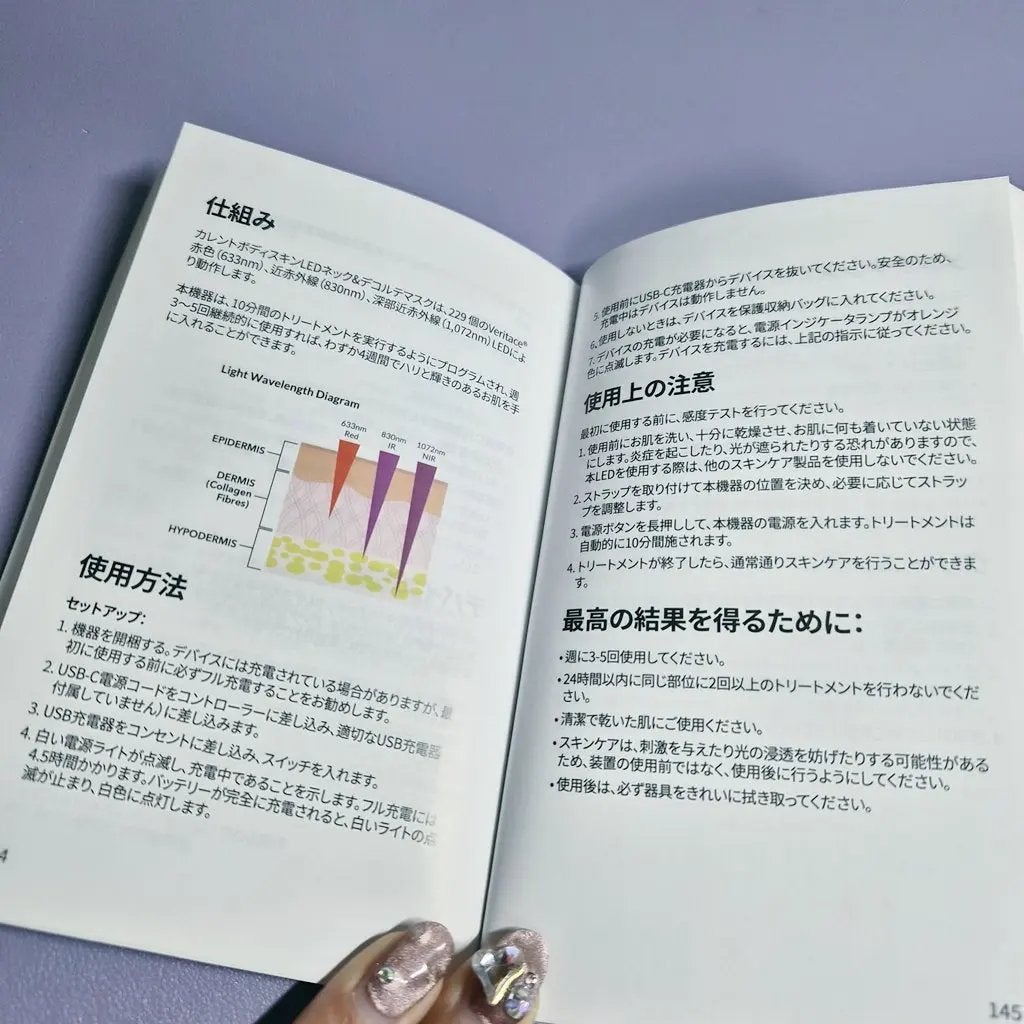 仕組み
カレントボディスキンLEDネック&デコルテマスクは、229 個のVeritace®
赤色 (633nm)、近赤外線 (830nm)、深部近赤外線 (1,072nm) LEDによ
り動作します。
本機器は、10分間のトリートメントを実行するようにプログラムされ、週
3〜5回継続的に使用すれば、わずか4週間でハリと輝きのあるお肌を手
に入れることができます。
Light Wavelength Diagram
633nm
Red
830nm
IR
1072nm
NIR
EPIDERMIS
DERMIS
(Collagen
Fibres)
HYPODERMIS
使用方法
セットアップ:
1. 機器を開梱する。デバイスには充電されている場合がありますが、最
初に使用する前に必ずフル充電することをお勧めします。
2. USB-C電源コードをコントローラーに差し込み、適切なUSB充電器
付属していません)に差し込みます。
3. USB充電器をコンセントに差し込み、スイッチを入れます。
4. 白い電源ライトが点滅し、充電中であることを示します。フル充電には
4.5時間かかります。バッテリーが完全に充電されると、白いライトの点
滅が止まり、白色に点灯します。
4
5. 使用前にUSB-C充電器からデバイスを抜いてください。安全のため、
充電中はデバイスは動作しません。
6. 使用しないときは、デバイスを保護収納バッグに入れてください。
7. デバイスの充電が必要になると、電源インジケータランプがオレンジ
色に点滅します。デバイスを充電するには、上記の指示に従ってください。
使用上の注意
最初に使用する前に、感度テストを行ってください。
1. 使用前にお肌を洗い、十分に乾燥させ、お肌に何も着いていない状態
にします。炎症を起こしたり、光が遮られたりする恐れがありますので、
本LEDを使用する際は、他のスキンケア製品を使用しないでください。
2. ストラップを取り付けて本機器の位置を決め、必要に応じてストラッ
プを調整します。
3. 電源ボタンを長押しして、本機器の電源を入れます。トリートメントは
自動的に10分間施されます。
4. トリートメントが終了したら、通常通りスキンケアを行うことができま
す。
最高の結果を得るために:
• 週に3-5回使用してください。
• 24時間以内に同じ部位に2回以上のトリートメントを行わないでくだ
さい。
• 清潔で乾いた肌にご使用ください。
• スキンケアは、刺激を与えたり光の浸透を妨げたりする可能性がある
ため、装置の使用前ではなく、使用後に行うようにしてください。
• 使用後は、必ず器具をきれいに拭き取ってください。
145